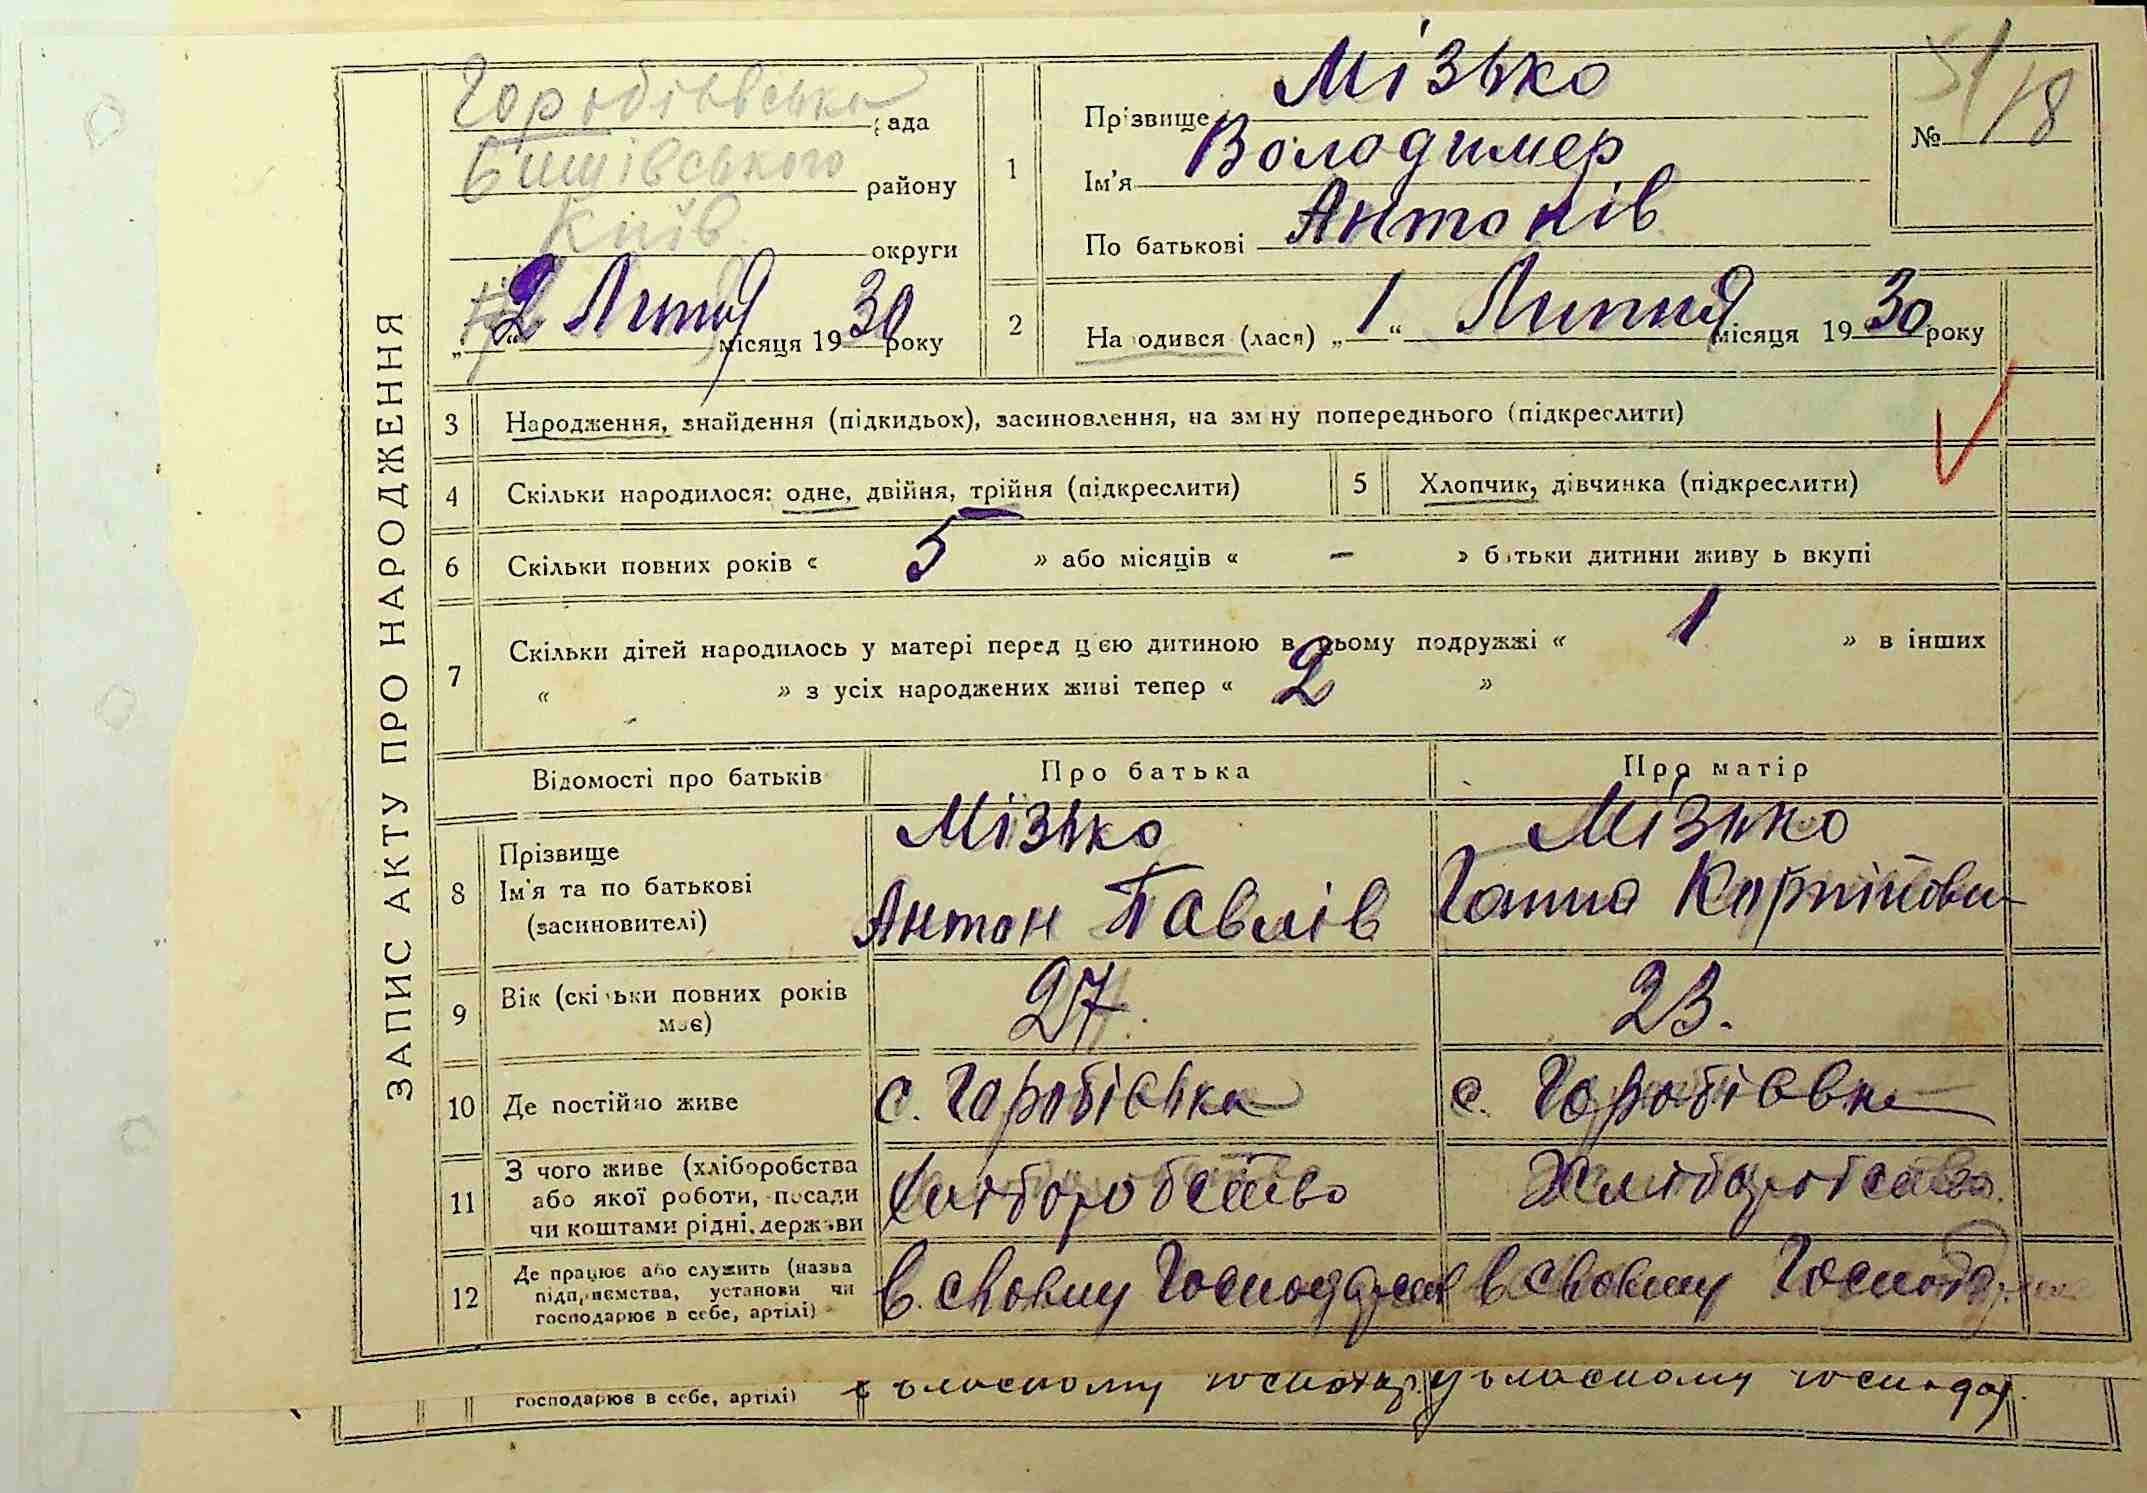 ЗАПИС АКТУ ПРО НАРОДЖЕННЯ
Горобіївська рада
Бишівського району
Київ округи
„2“ Липня місяця 1930 року
1
Прізвище Мізько
Ім'я Володимер
По батькові Антонів
№ 51/18
2
Народився (лася) „1“ Липня місяця 1930 року
3 Народження, знайдення (підкидьок), засиновлення, на зміну попереднього (підкреслити)
4 Скільки народилося: одне, двійня, трійня (підкреслити)
5 Хлопчик, дівчинка (підкреслити)
6 Скільки повних років « 5 » або місяців « - » батьки дитини живуть вкупі
7 Скільки дітей народилось у матері перед цією дитиною в цьому подружжі « 1 » в інших
« » з усіх народжених живі тепер « 2 »
Відомості про батьків Про батька Про матір
8 Прізвище Мізько Мізько
Ім'я та по батькові Антон Павлів Ганна Корніївни
(засиновителі)
9 Вік (скільки повних років 27. 23.
має)
10 Де постійно живе с. Горобіївка с. Горобіївка
11 З чого живе (хліборобства
або якої роботи, посади Хліборобство Хліборобство.
чи коштами рідні, держави
12 Де працює або служить (назва
підприємства, установи чи в своєму Господарст в своєму Господар
господарює в себе, артілі)
господарює в себе, артілі) власному господар. у власному господар.